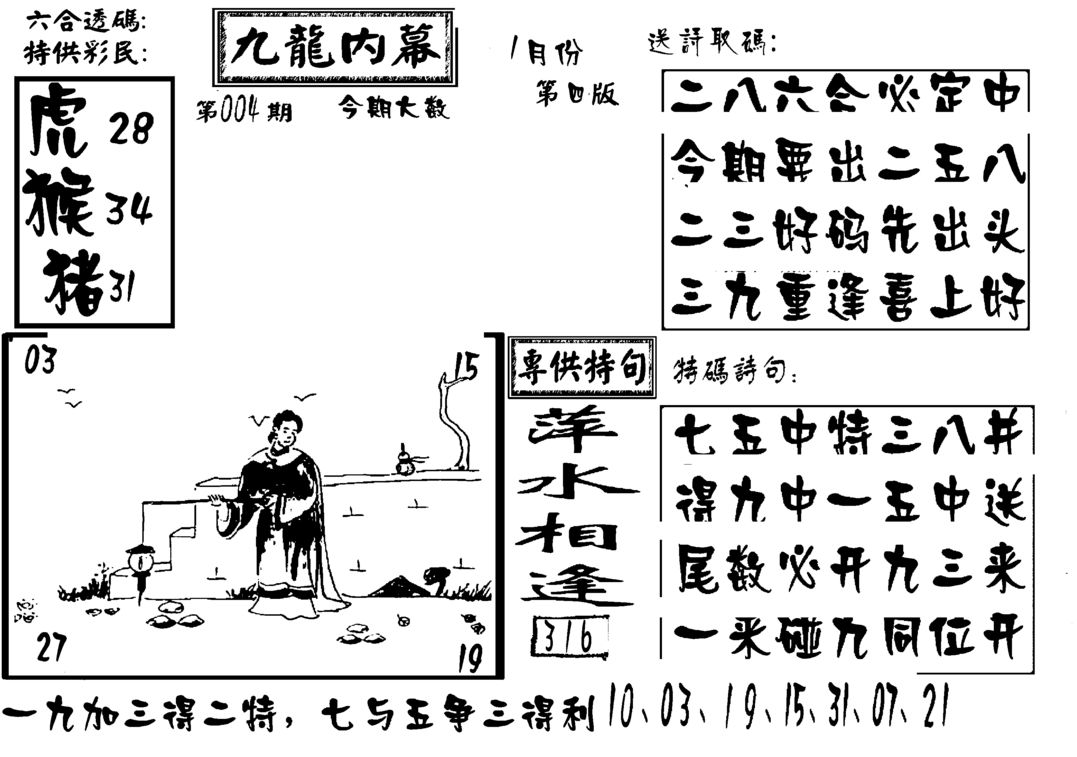 六合透碼:
特供彩民:
九龍内幕
1月份
第四版
第004期
今期大数
虎 28
猴 34
猪 31
送詩取碼:
二八六合必定中
今期要出二五八
二三好码先出头
三九重逢喜上好
03
15
27
19
專供特句
萍水相逢
316
特碼詩句:
七五中特三八并
得九中一五中送
尾数必开九三来
一来碰九同位开
一九加三得二特，七与五争三得利 10、03、19、15、31、07、21